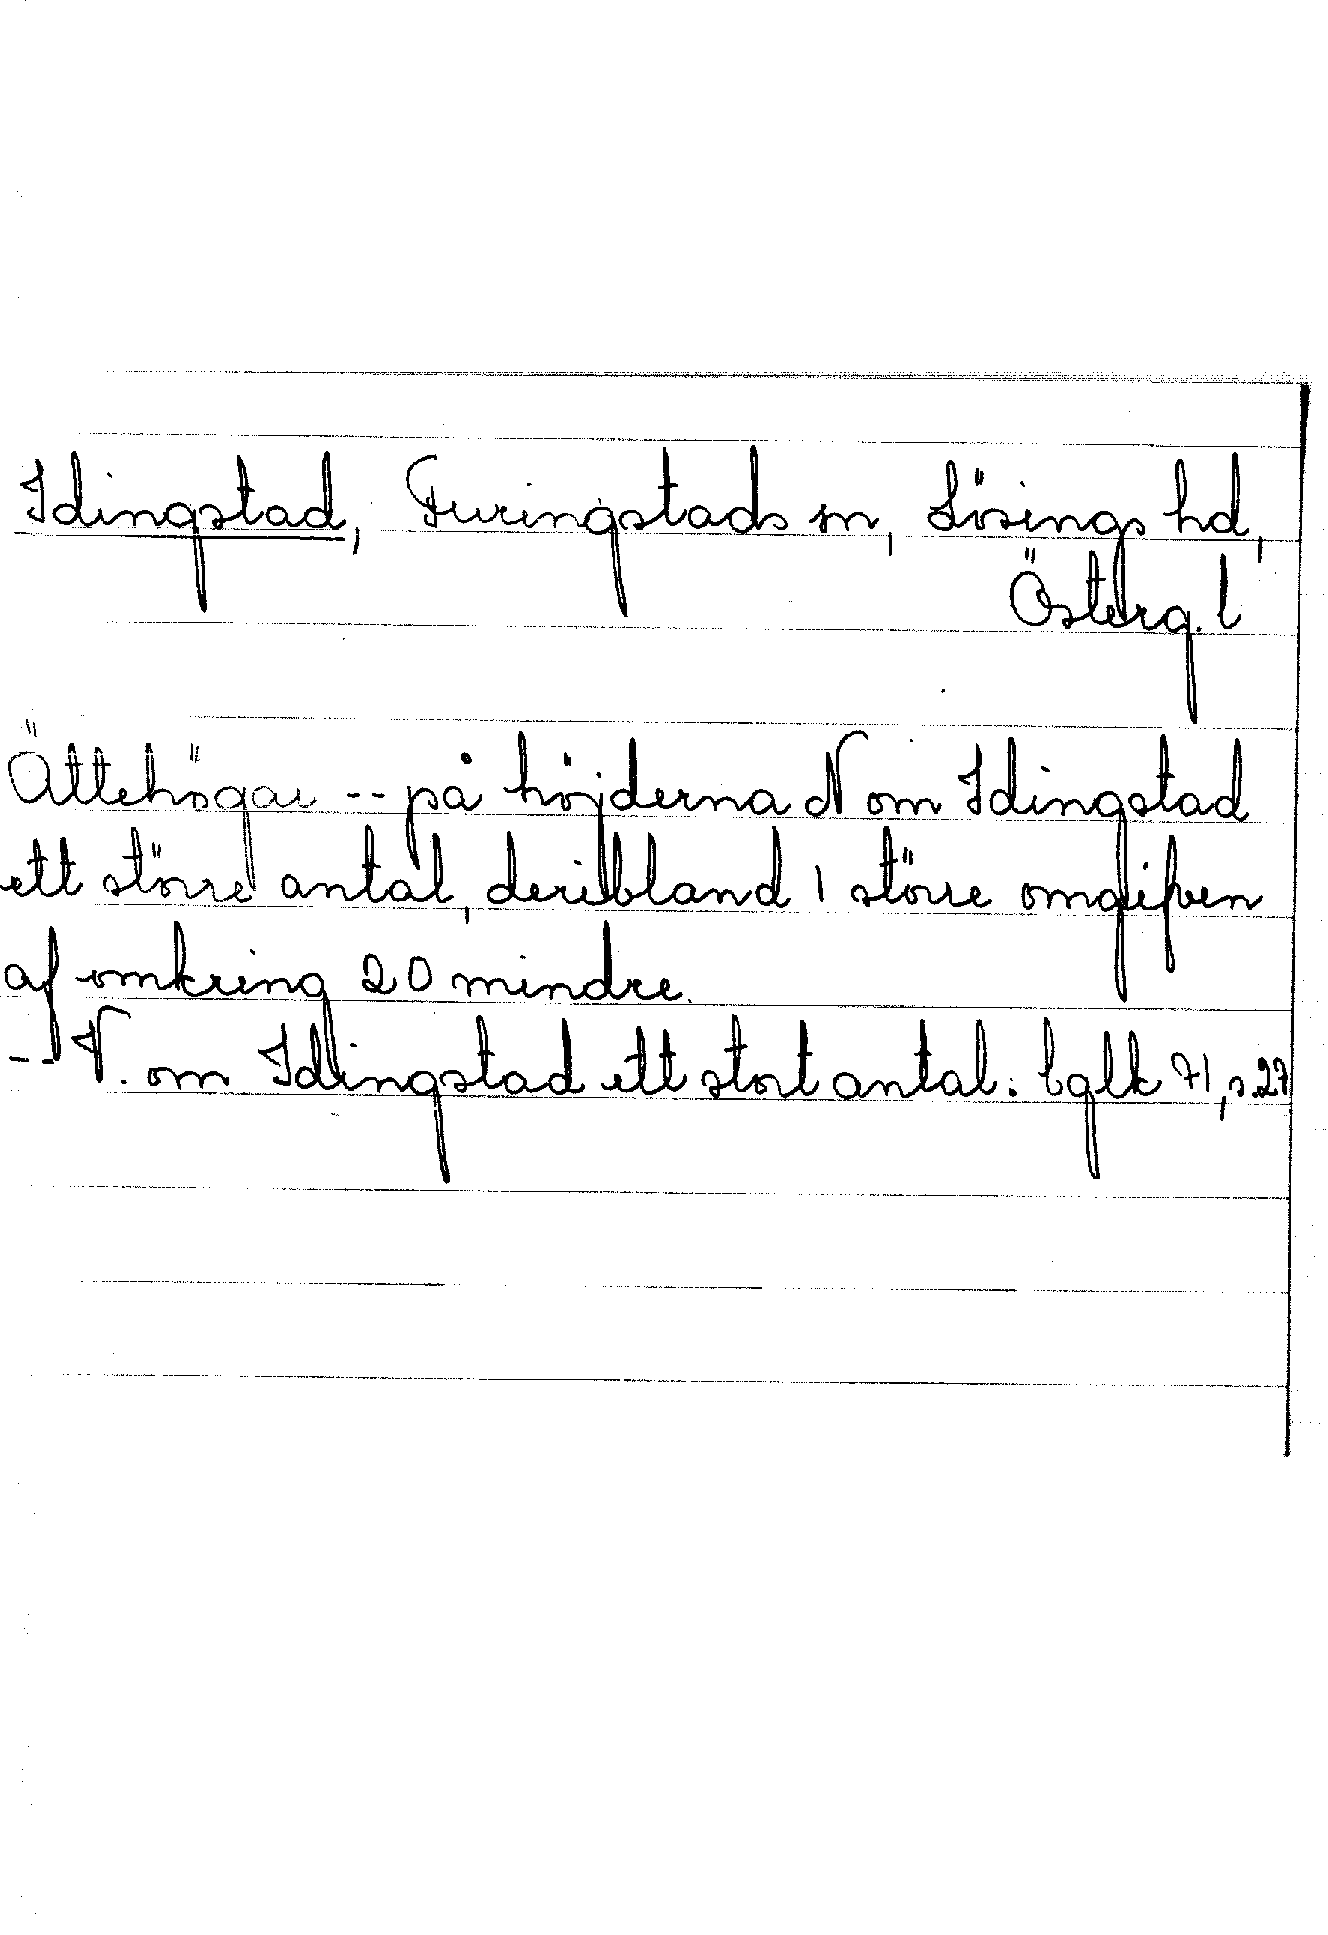 Idingstad, Furingstads sn, Lösings hd,
Österg. l
Ättehögar -- på höjderna N om Idingstad
ett större antal, deribland 1 större omgifven
af omkring 20 mindre.
-- V. om Idingstad ett stort antal. bglk 71, s.27